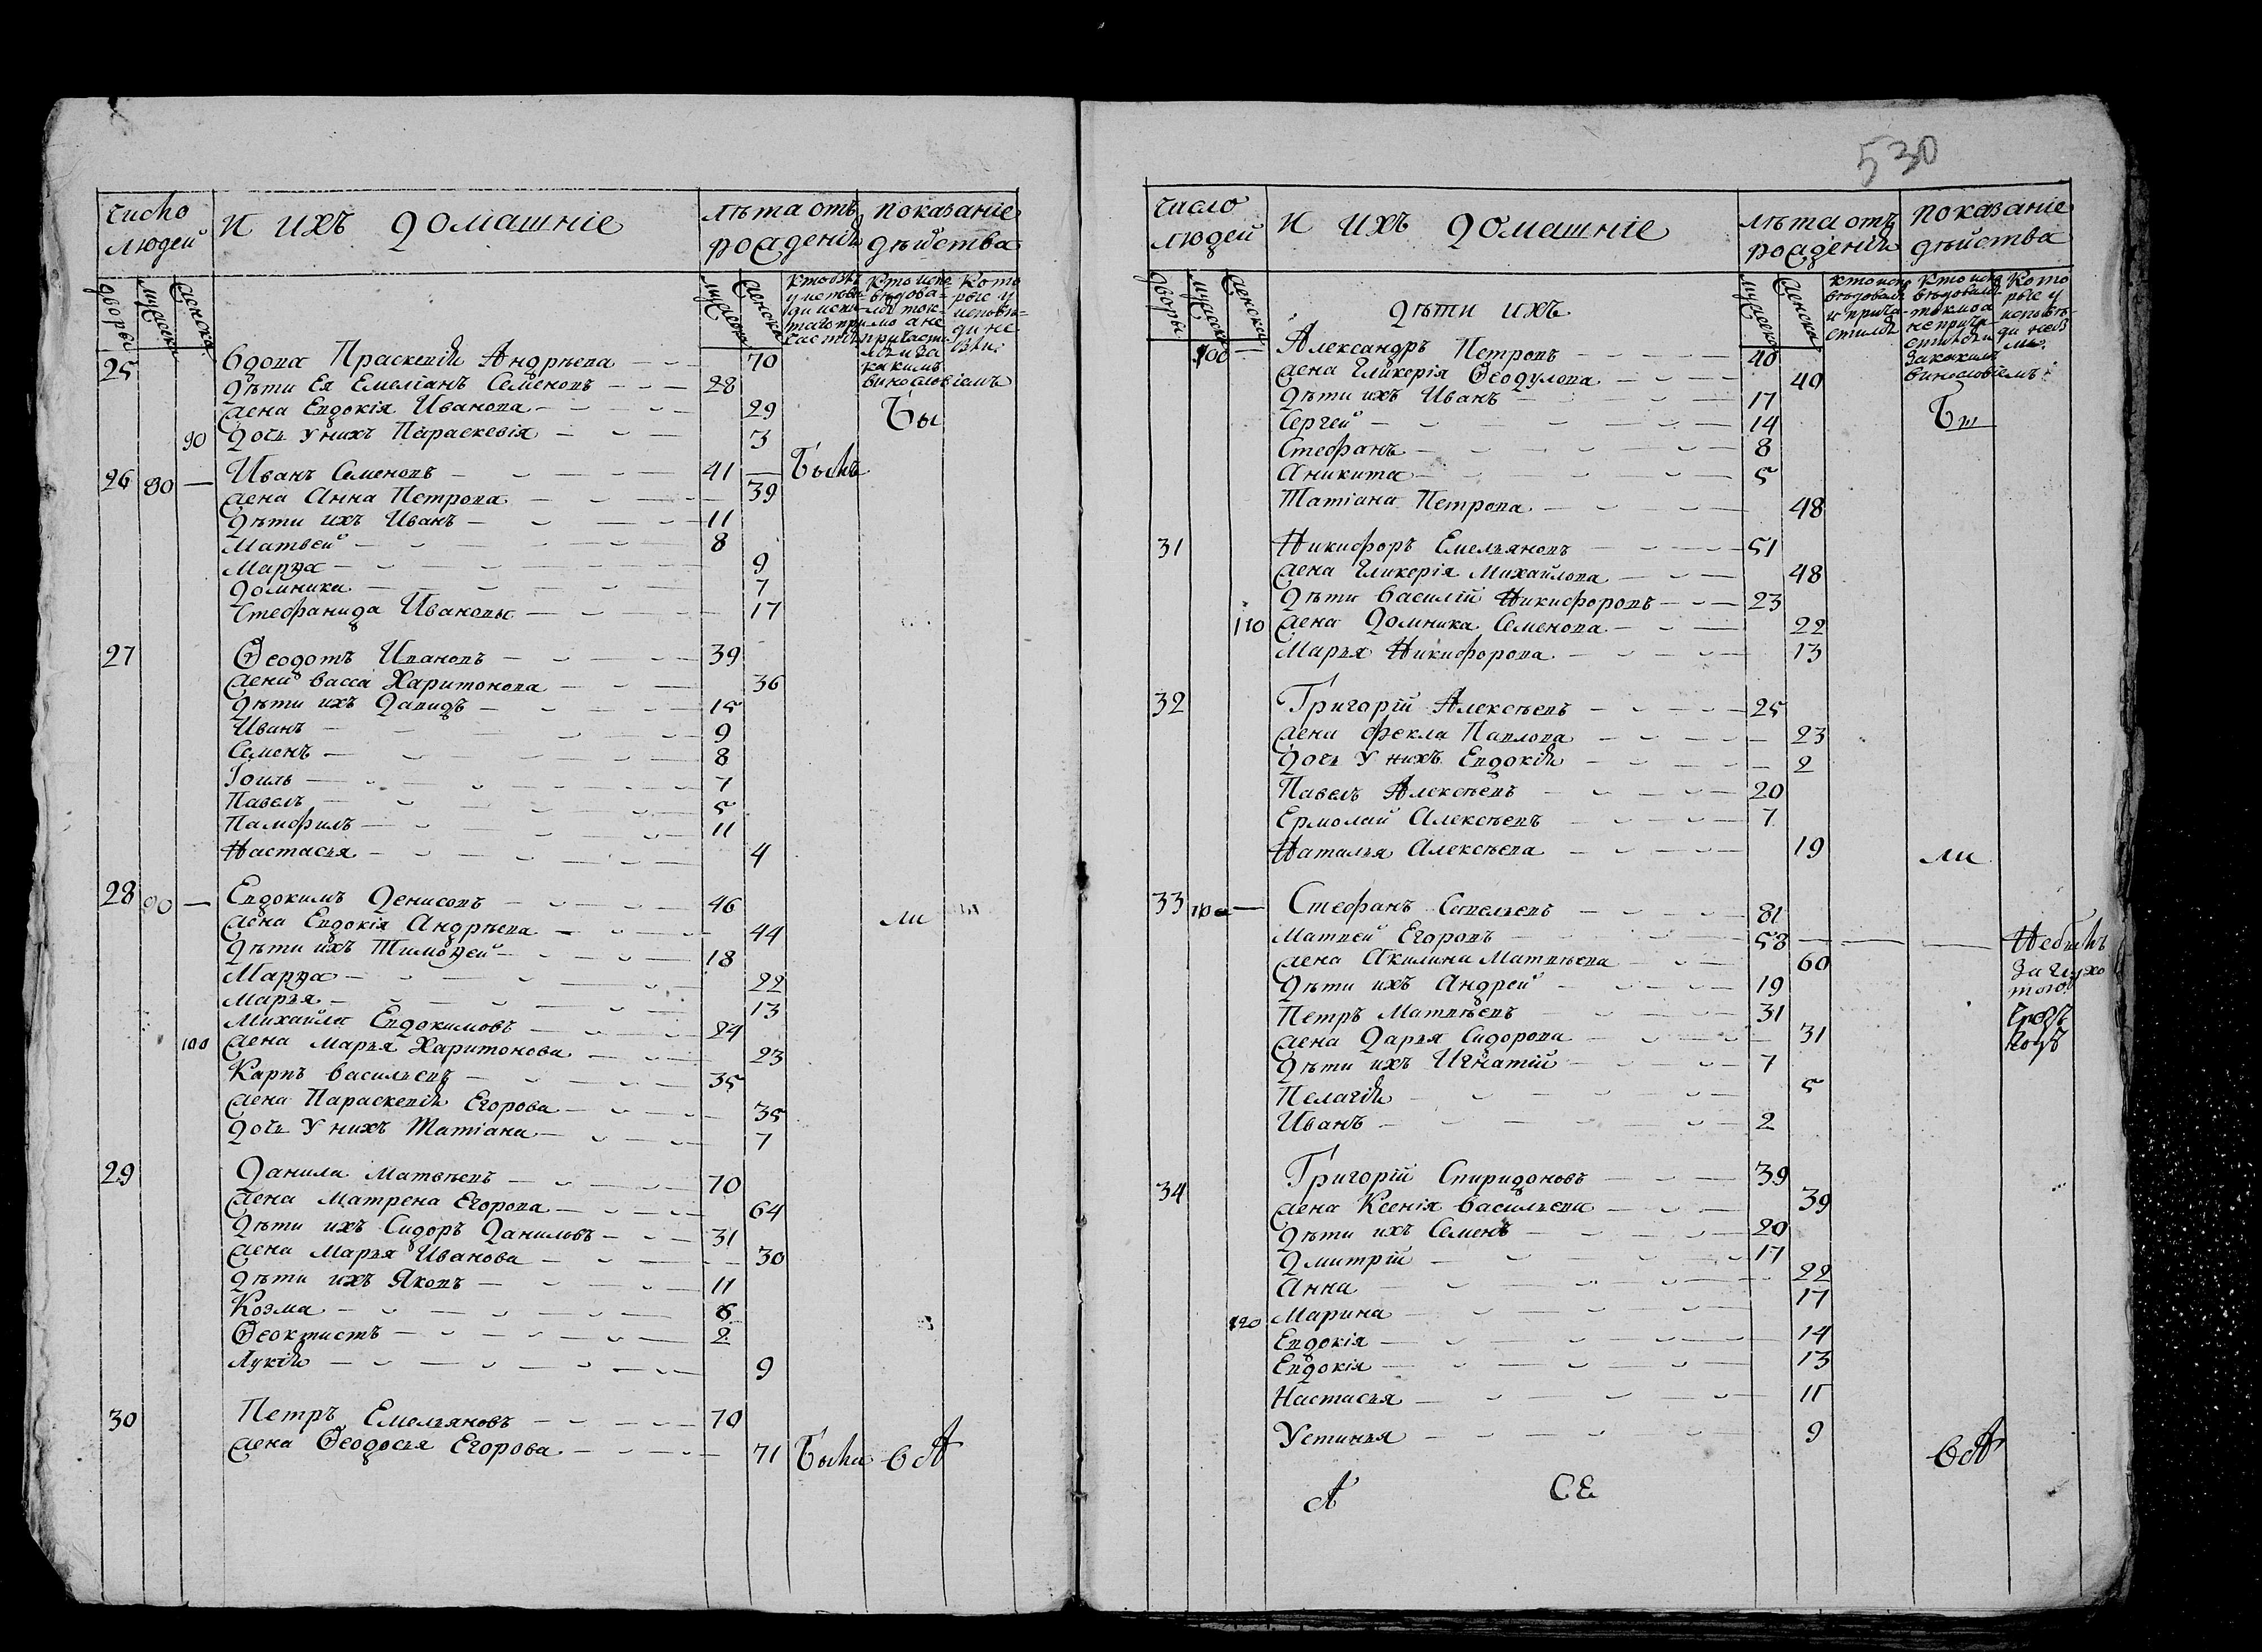 число людей
и ихъ домашніе
лѣта отъ рожденія
показаніе дѣйства
дворы
мужеска
женска
мужеска
женска
Кто исповѣдовались токмо а не причастились и за какимъ винословіемъ
Которые у исповѣди не были
25 вдова Праскевія Андрѣева 70
дѣти Ея Емеліанъ Семеновъ 28
жена Евдокія Иванова 29 Бы
90 дочь у нихъ Параскевія 3
26 80 — Иванъ Семеновъ 41 — Былъ
жена Анна Петрова 39
дѣти ихъ Иванъ 11
Матвей 8
Марѳа 9
Домника 7
Стефанида Ивановы 17
27 Ѳеодотъ Ивановъ 39
жена васса Харитонова 36
дѣти ихъ Давидъ 15
Иванъ 9
Семенъ 8
Іоиль 7
Павелъ 5
Памфилъ 11
Настасья 4
28 90 — Евдокимъ Денисовъ 46
жена Евдокія Андрѣева 44 ли
дѣти ихъ Тимоѳей 18
Марѳа 22
Марья 13
Михайла Евдокимовъ 24
100 жена Марья Харитонова 23
Карпъ васильевъ 35
жена Параскевія Егорова 35
дочь у нихъ Татіана 7
29 Данила Матвѣевъ 70
жена Матрена Егорова 64
дѣти ихъ Сидоръ Даниловъ 31
жена Марья Иванова 30
дѣти ихъ Яковъ 11
Козма 6
Ѳеоктистъ 2
Лукія 9
30 Петръ Емельяновъ 70
жена Ѳеодосья Егорова 71 Были вА
530
число людей
и ихъ домашніе
лѣта отъ рожденія
показаніе дѣйства
дворы
мужеска
женска
мужеска
женска
кто исповѣдовались и причастились
Кто исповѣдовались токмо а не причастились и за какимъ винословіемъ
Которые у исповѣди не были
дѣти ихъ
100 — Александръ Петровъ 40
жена Гликерія Ѳеодулова 40
дѣти ихъ Иванъ 17
Сергей 14 Бы
Стефанъ 8
Аникита 5
Татіана Петрова 48
31 Никифоръ Емельяновъ 51
жена Гликерія Михайлова 48
дѣти василій Никифоровъ 23
110 жена Домника Семенова 22
Марья Никифорова 13
32 Григорій Алексѣевъ 25
жена фекла Павлова 23
дочь у нихъ Евдокія 2
Павелъ Алексѣевъ 20
Ермолай Алексѣевъ 7
Наталья Алексѣева 19 ли
33 110 — Стефанъ Савельевъ 81
Матвей Егоровъ 58 — Небылъ
жена Акилина Матвѣева 60 за глухо
дѣти ихъ Андрей 19 тою
Петръ Матвѣевъ 31
жена Дарья Сидорова 31
дѣти ихъ Игнатій 7
Пелагія 5
Иванъ 2
34 Григорій Спиридоновъ 39
жена Ксенія васильева 39
дѣти ихъ Семенъ 20
Дмитрій 17
Анна 22
120 Марина 17
Евдокія 14
Евдокія 13
Настасья 11
Устинья 9
вА
А СЕ